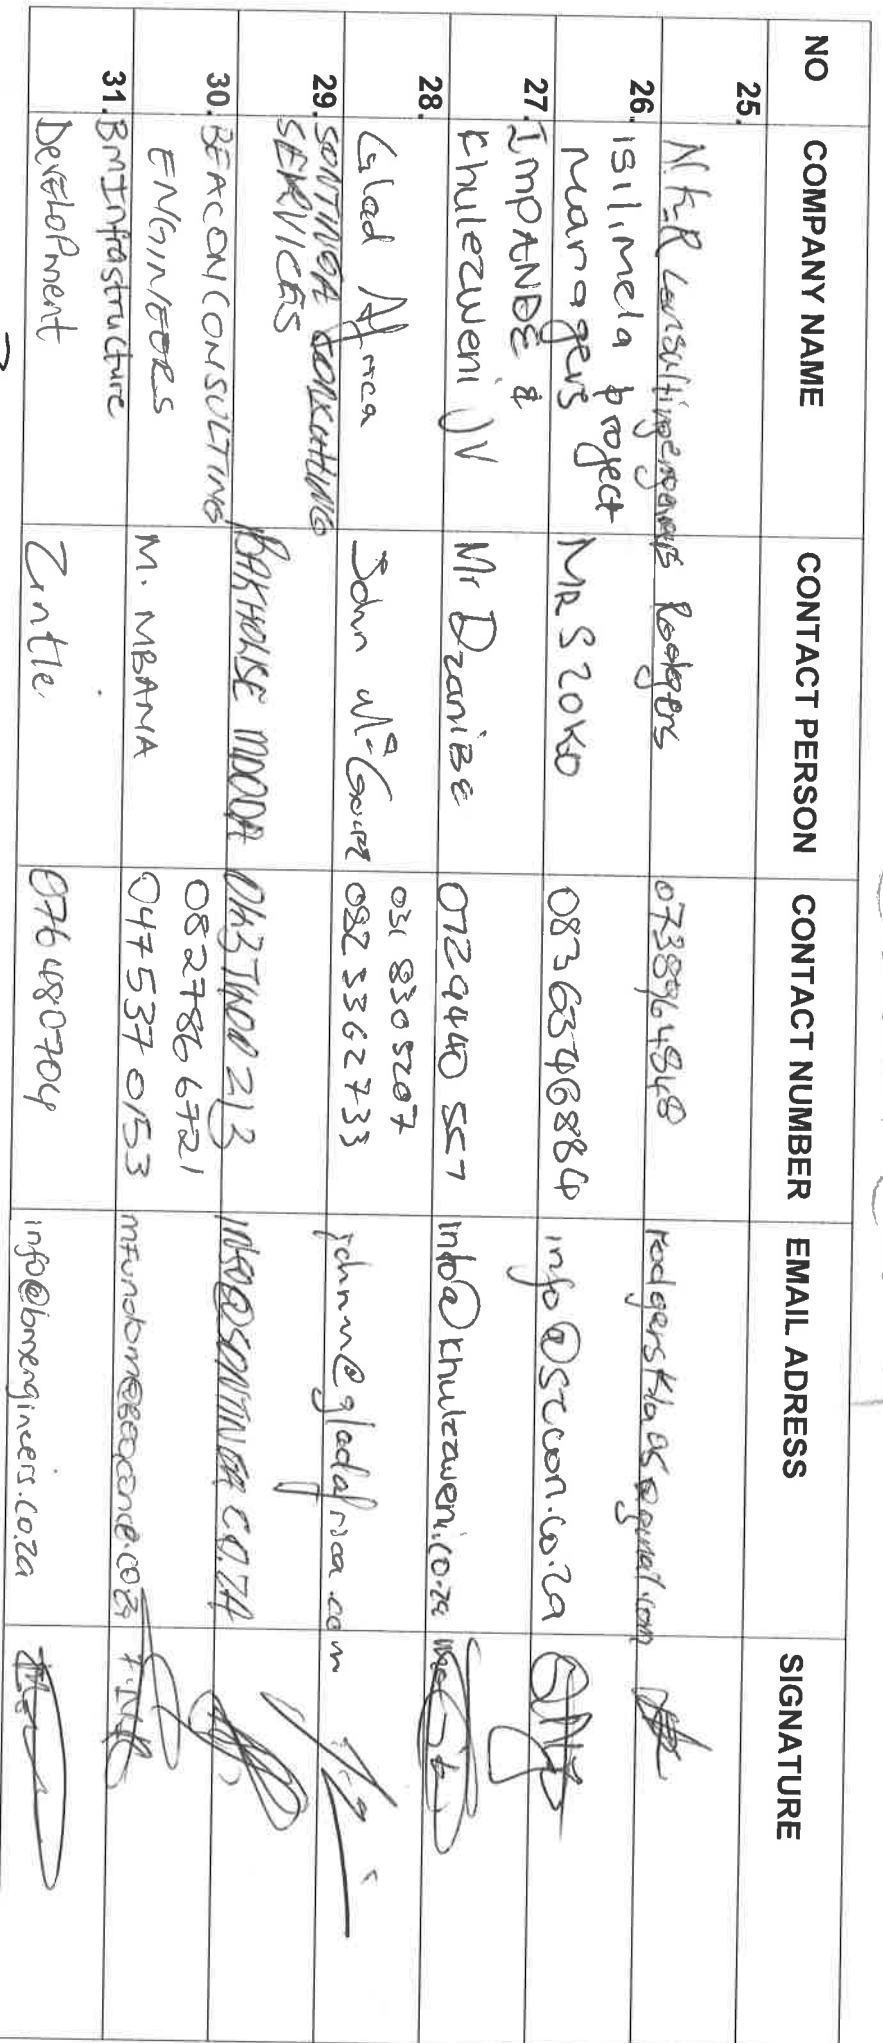 NO COMPANY NAME CONTACT PERSON CONTACT NUMBER EMAIL ADRESS SIGNATURE
25. N.K.R Consulting engineers Rodgers 0738964848 rodgerskla05@gmail.com
26. isilimela project
managers MR SZOKO 0836346884 info@szcon.co.za
27. IMPANDE &
Khulezweni JV Mr Dzanibe 0729440557 info@khulezweni.co.za
28. Glad Africa John 031 8305207
082 3362733 johnm@gladafrica.com
29. SONTINGA CONSULTING
SERVICES MDODA 213 INFO@SONTINGA.CO.ZA
30. BEACON CONSULTING 082 786 6721
ENGINEERS M. MBANA 047 537 0153
31. BM Infrastructure
Development Zintle 076480704 info@bmengineers.co.za